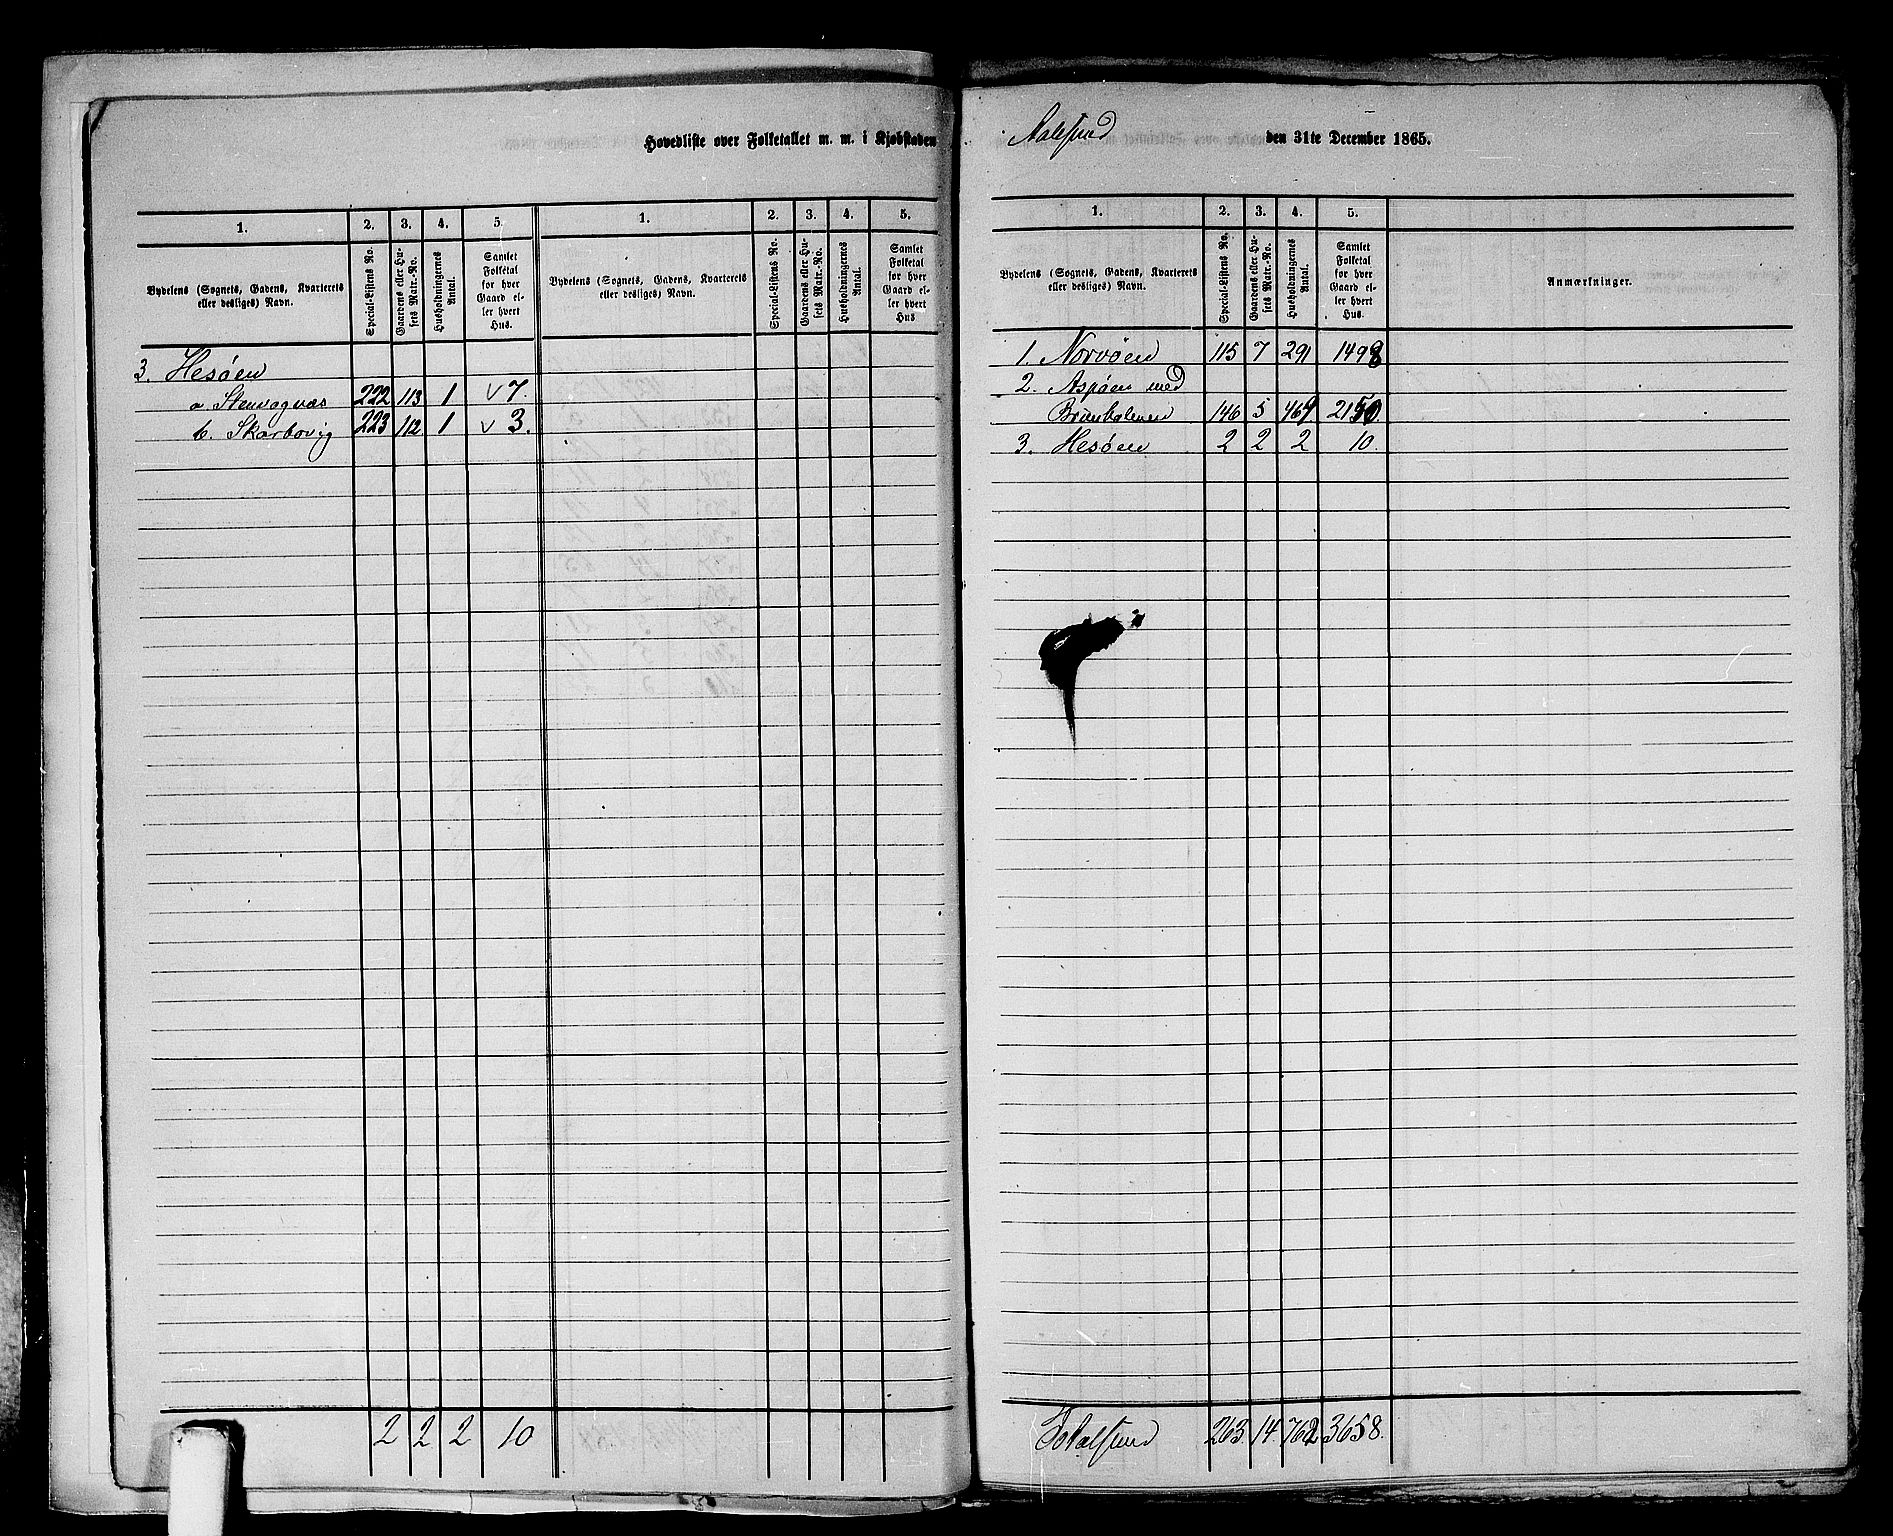 Hovedliste over Folketallet m. m. i Kjøbstaden Aalesund den 31te December 1865.
1. 2. 3. 4. 5. 1. 2. 3. 4. 5.
Bydelens (Sognets, Gadens, Kvarterets eller desliges) Navn. Special-Listens No. Gaardens eller Husets Matr.-No. Husholdningernes Antal. Samlet Folketal for hver Gaard eller hvert Hus.
Bydelens (Sognets, Gadens, Kvarterets eller desliges) Navn. Special-Listens No. Gaardens eller Husets Matr.-No. Husholdningernes Antal. Samlet Folketal for hver Gaard eller hvert Hus
3. Hesøen
a. Stenvogvas 222 113 1 v 7.
b. Skarbovig 223 112. 1 v 3.
2 2 2 10
1. 2. 3. 4. 5.
Bydelens (Sognets, Gadens, Kvarterets eller desliges) Navn. Special-Listens No. Gaardens eller Husets Matr.-No. Husholdningernes Antal. Samlet Folketal for hver Gaard eller hvert Hus. Anmærkninger.
1. Norvøen 115 7 291 1498
2. Aspøen med
146 5 469. 2150.
3. Hesøen 2 2 2 10.
Totalsum 263. 14. 762 3658.